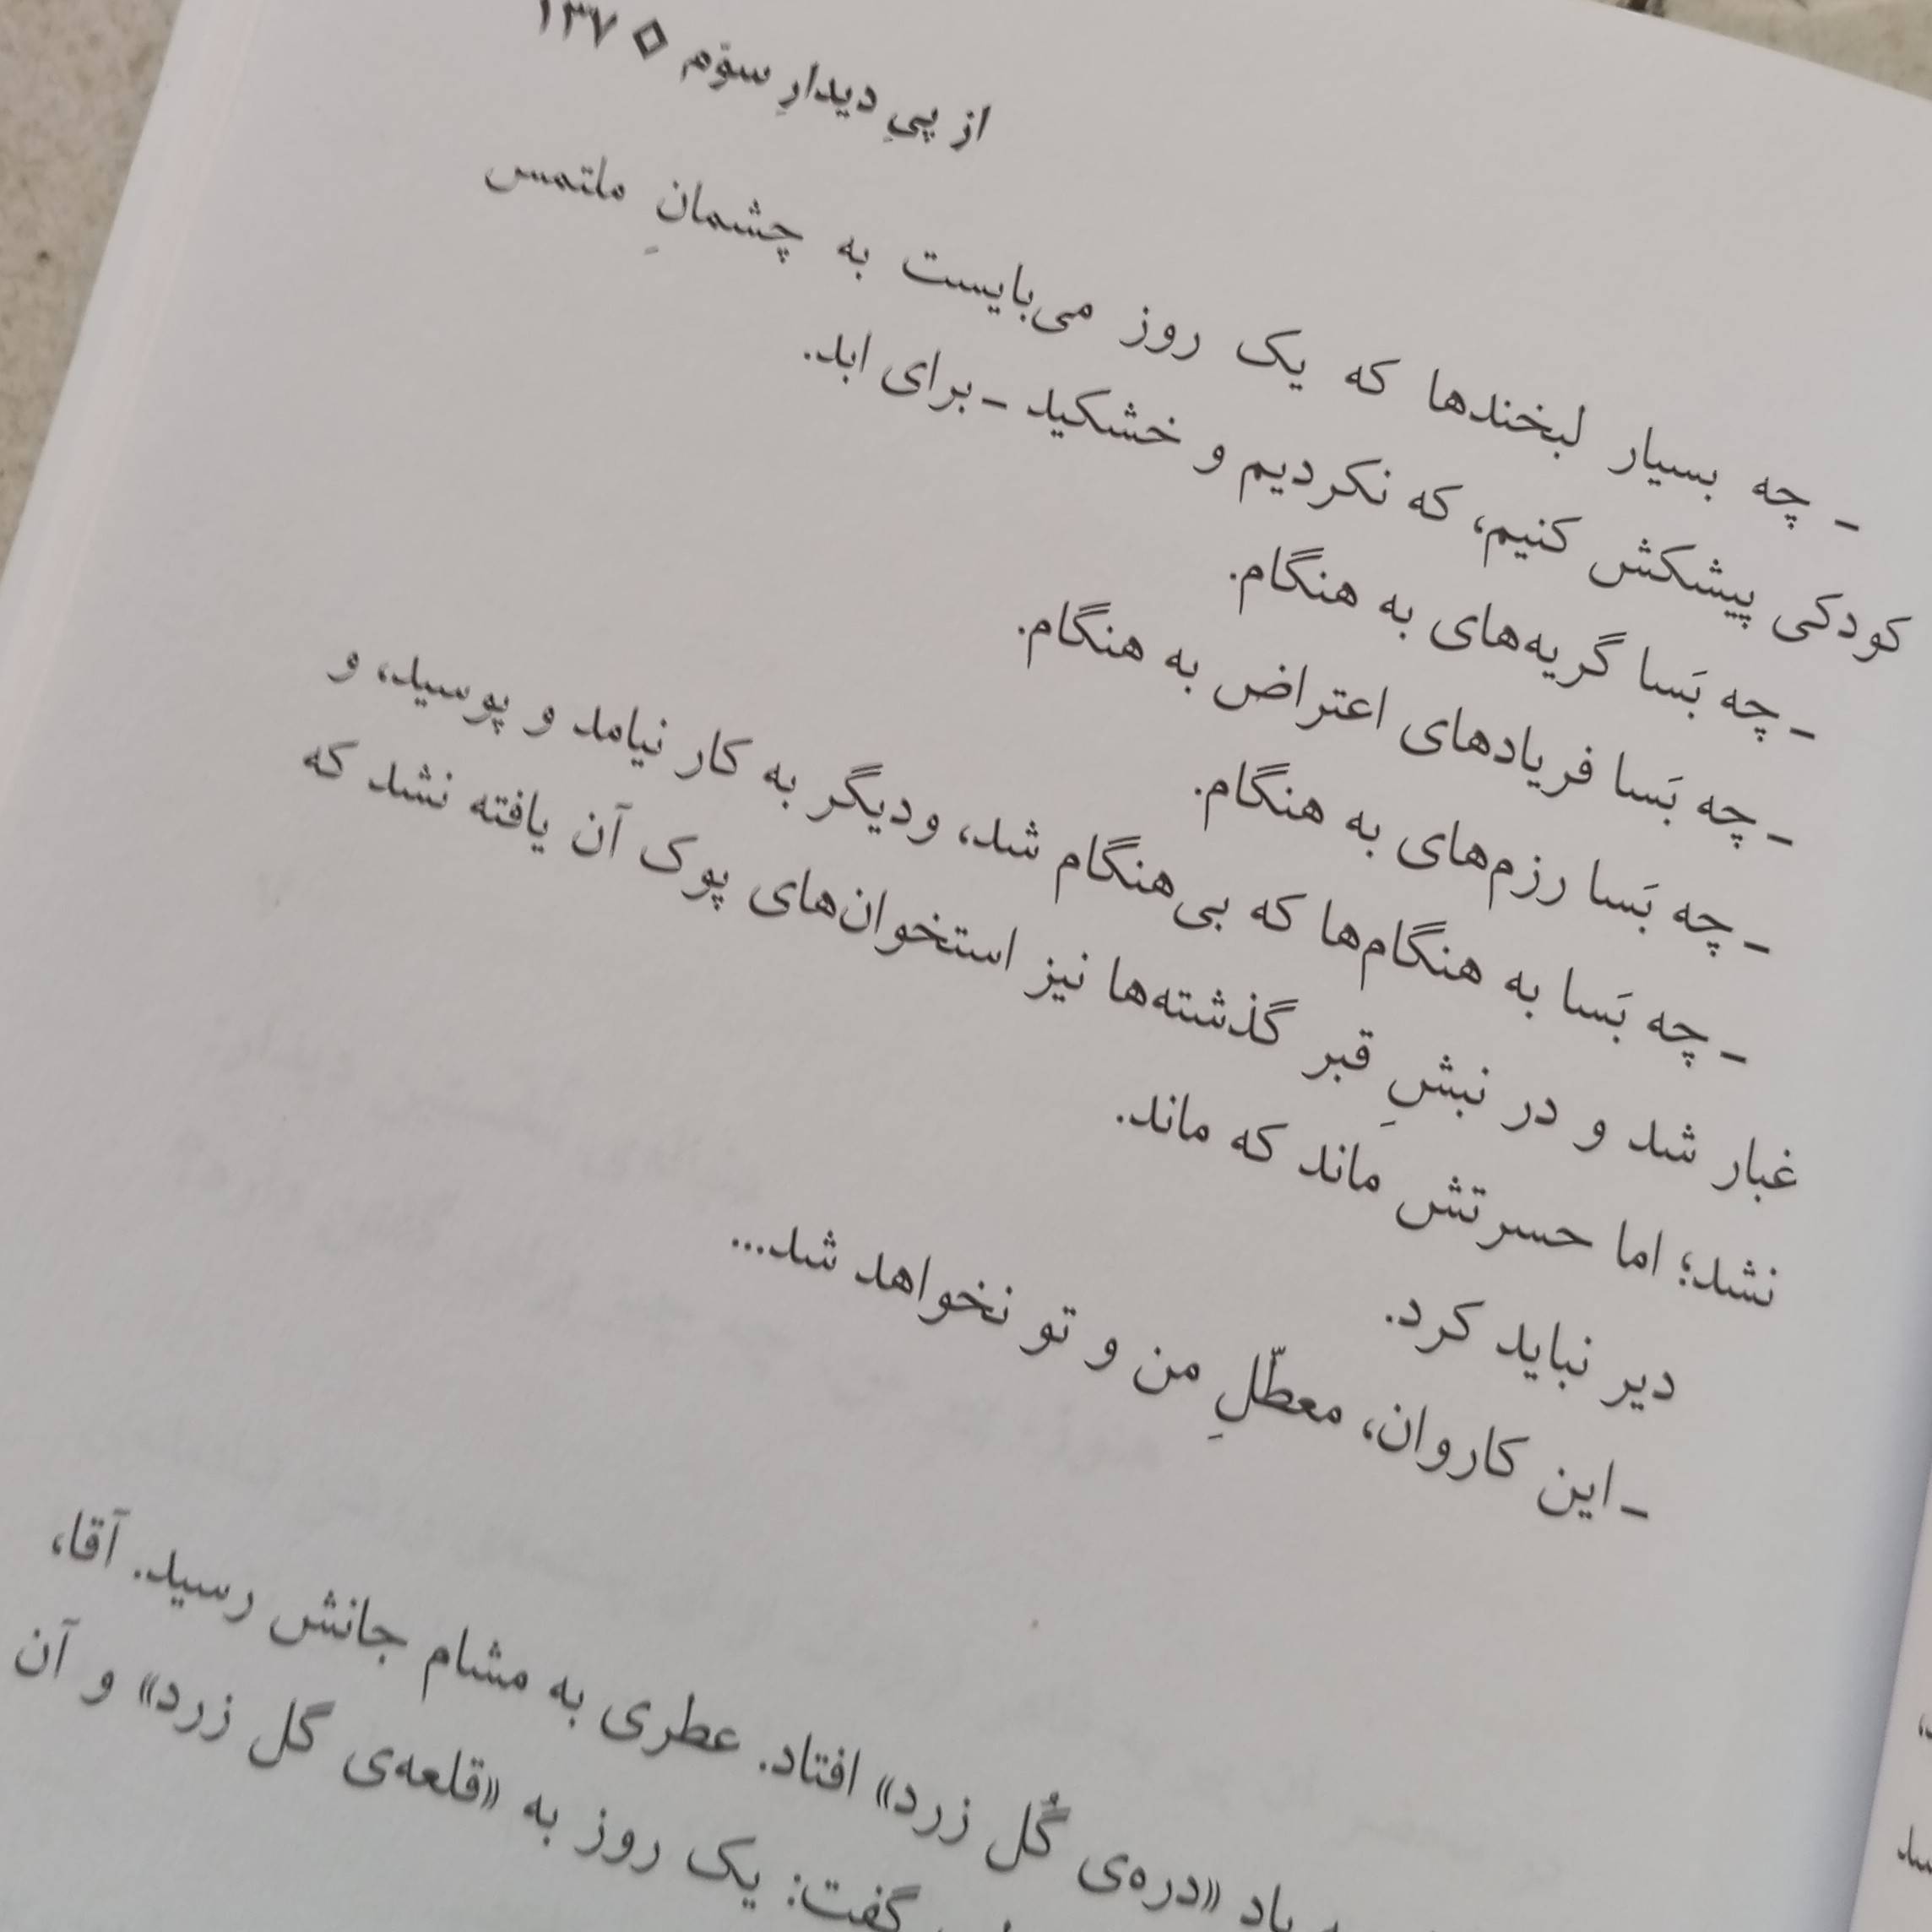 از پیِ دیدارِ سوّم ◇ ۱۳۷
ـ چه بسیار لبخندها که یک روز می‌بایست به چشمانِ ملتمس
کودکی پیشکش کنیم، که نکردیم و خشکید ـ برای ابد.
ـ چه بَسا گریه‌های به هنگام.
ـ چه بَسا فریادهای اعتراض به هنگام.
ـ چه بَسا رزم‌های به هنگام.
ـ چه بَسا به هنگام‌ها که بی‌هنگام شد، ودیگر به کار نیامد و پوسید، و
غبار شد و در نبشِ قبر گذشته‌ها نیز استخوان‌های پوک آن یافته نشد که
نشد؛ اما حسرتش ماند که ماند.
دیر نباید کرد.
ـ این کاروان، معطّلِ من و تو نخواهد شد...
یاد «دره‌ی گُل زرد» افتاد. عطری به مشام جانش رسید. آقا،
گفت: یک روز به «قلعه‌ی گل زرد» و آن